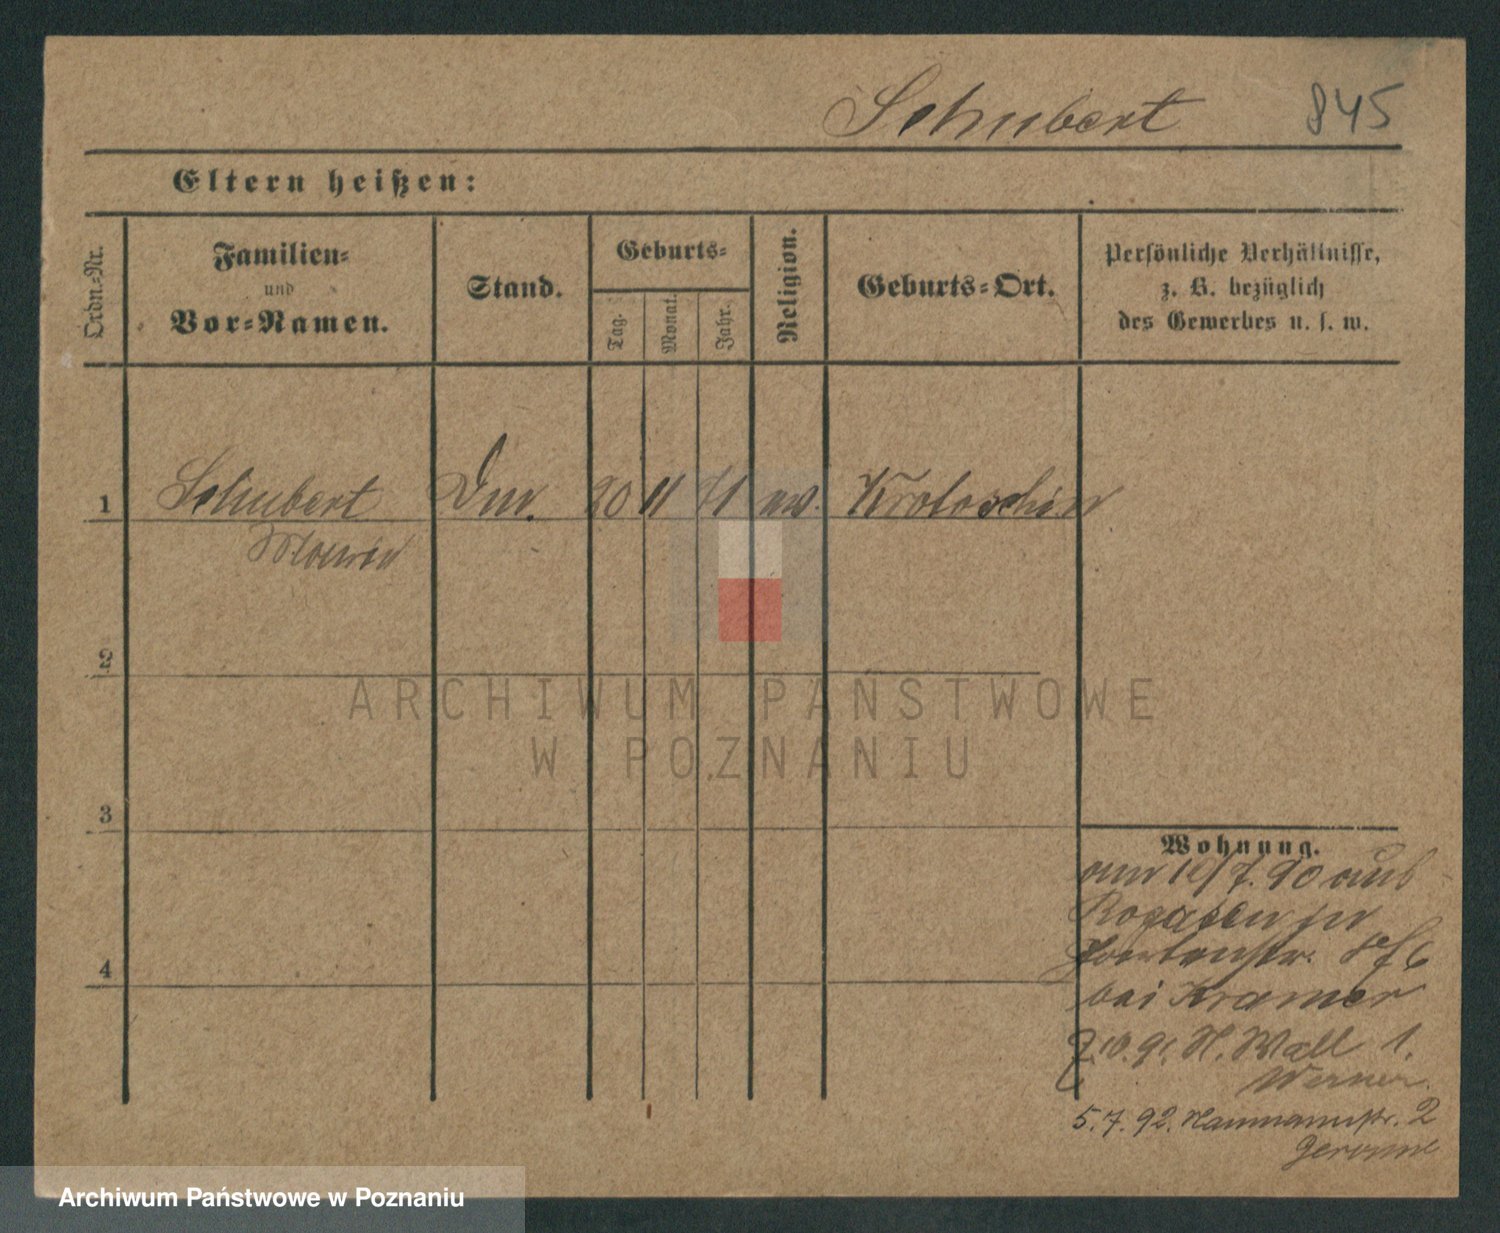 Schubert 845
Eltern heißen:
Ordn.-Nr.
Familien-
und
Vor-Namen.
Stand.
Geburts-
Tag.
Monat.
Jahr.
Religion.
Geburts-Ort.
Persönliche Verhältnisse,
z. B. bezüglich
des Gewerbes u. s. w.
1 Schubert 20 11 71 ev. Krotoschin
2
ARCHIWUM PAŃSTWOWE
W POZNANIU
3
Wohnung.
am 10/7. 90 aus
Rogasen in
bei Kramer
7.10.91. Wall 1.
Werner
4
5.7.92. Naumannstr. 2
Archiwum Państwowe w Poznaniu